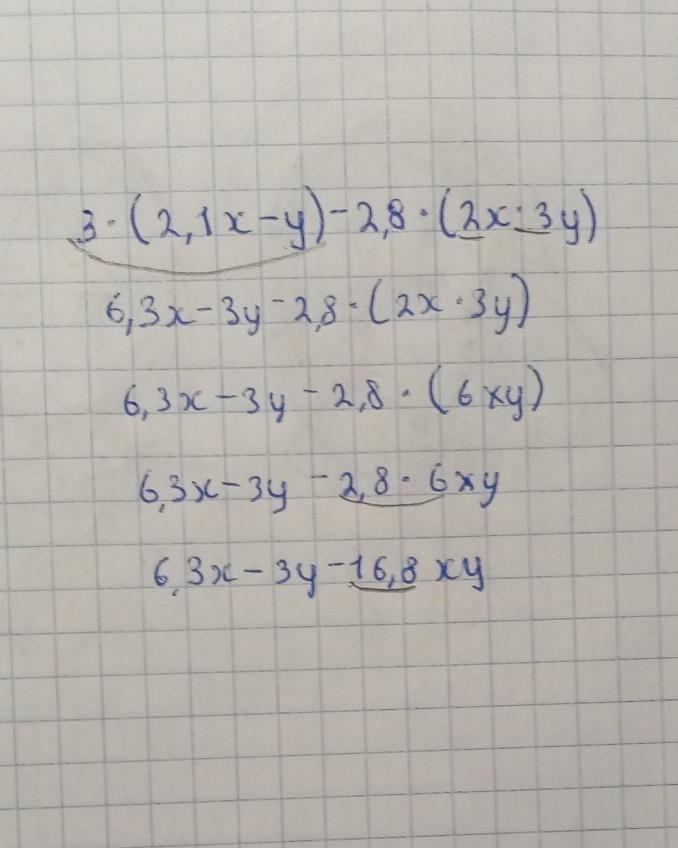 3·(2,1x-y)-2,8·(2x·3y)
6,3x-3y-2,8·(2x·3y)
6,3x-3y-2,8·(6xy)
6,3x-3y-2,8·6xy
6,3x-3y-16,8xy